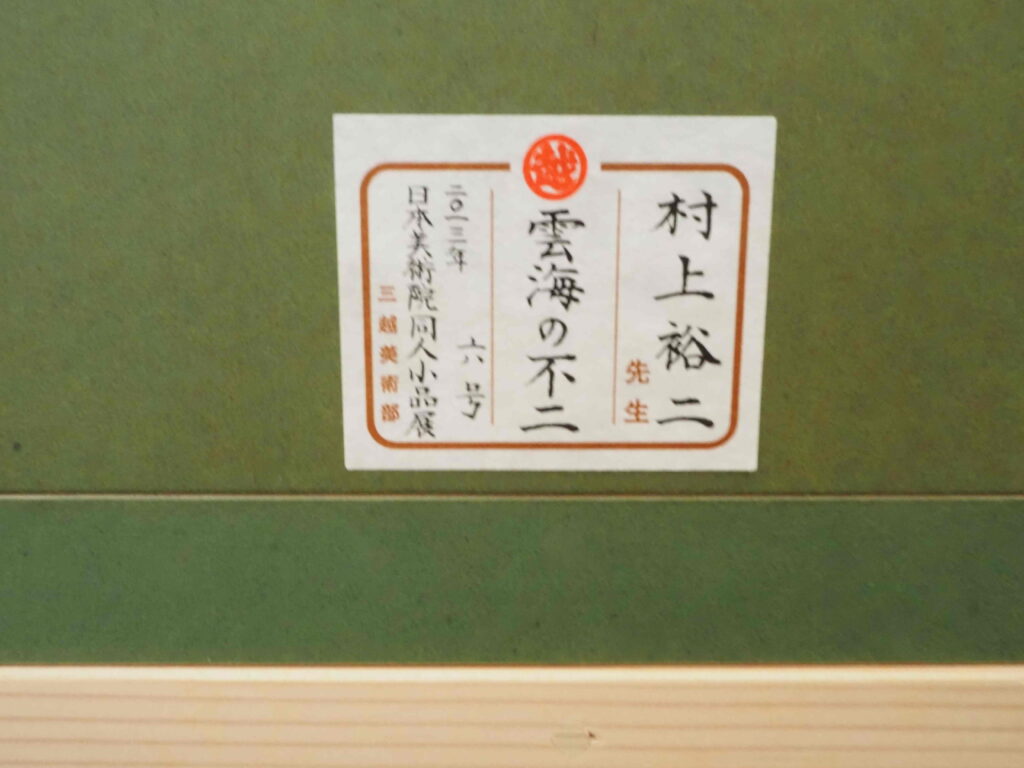 越
村上裕二
先生
雲海の不二
六号
二〇一三年
日本美術院同人小品展
三越美術部